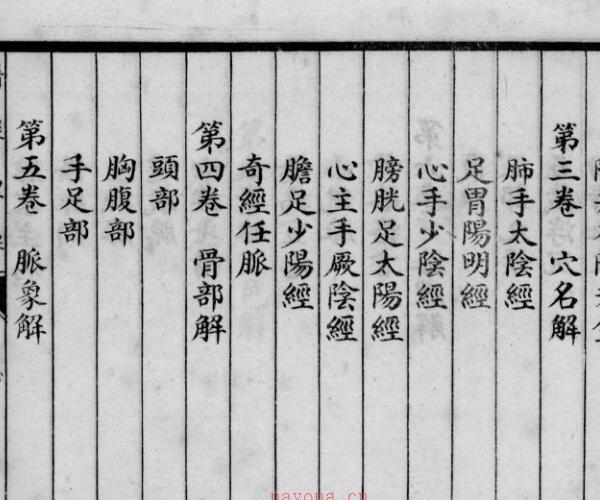 第三卷 穴名解
肺手太陰經
足胃陽明經
心手少陰經
膀胱足太陽經
心主手厥陰經
膽足少陽經
奇經任脈
第四卷 骨部解
頭部
胸腹部
手足部
第五卷 脈象解
nayona.cn